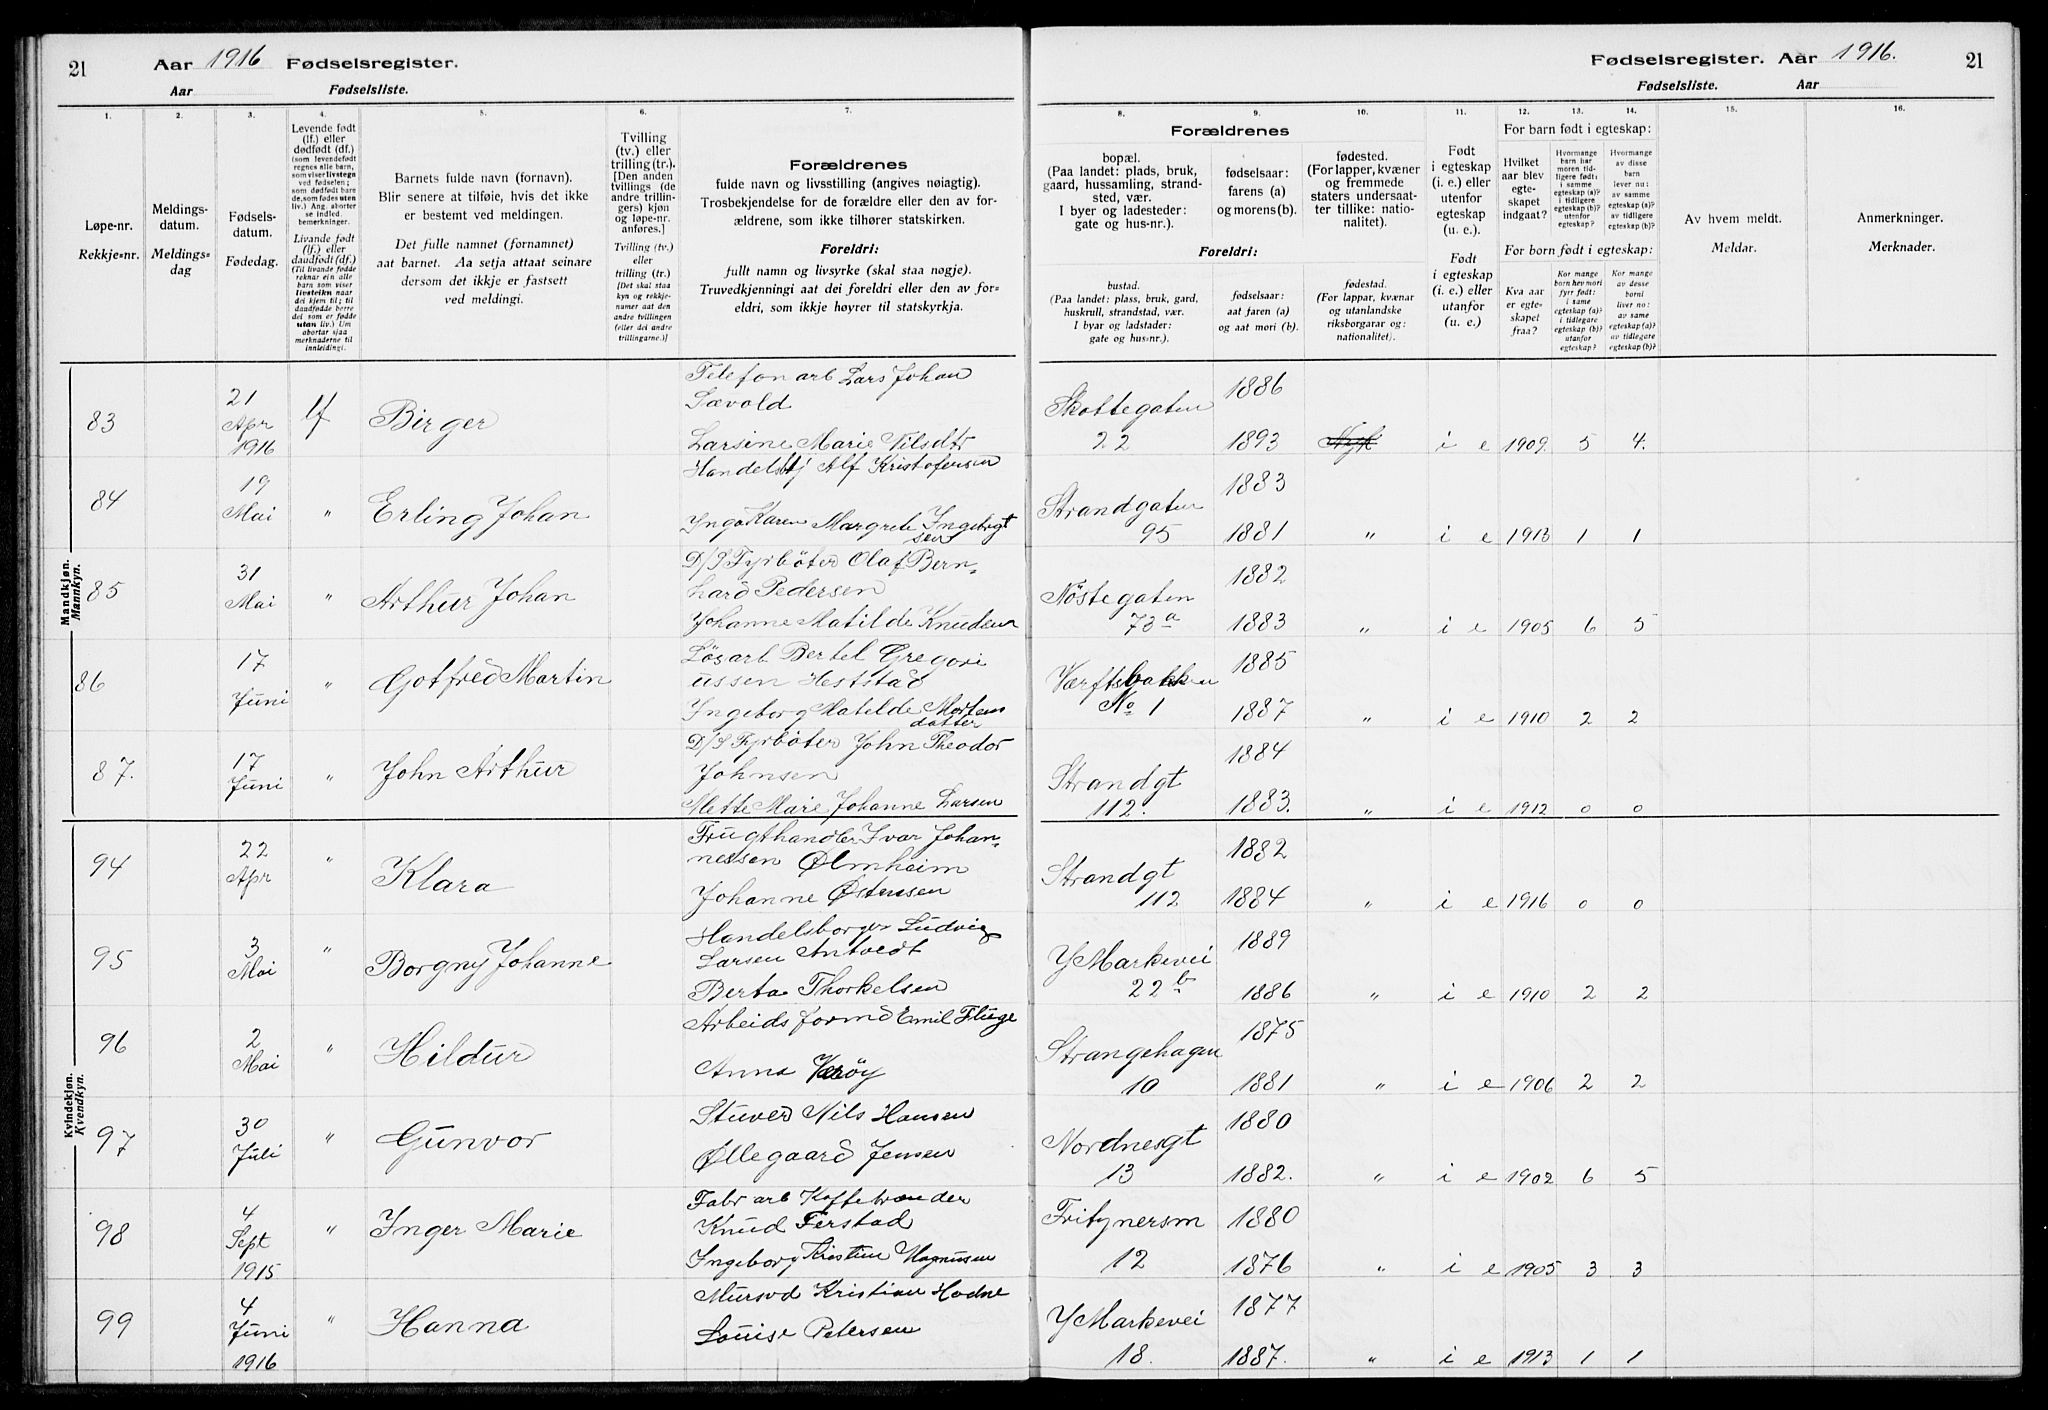 21
Aar 1916 Fødselsregister.
Aar Fødselsliste.
Fødselsregister. Aar 1916.
21
Fødselsliste. Aar
1.
2.
3.
4.
5.
6.
7.
8.
9.
10.
11.
12.
13.
14.
15.
16.
Løpe-nr.
Rekkje-nr.
Meldings-
datum.
Meldings-
dag
Fødsels-
datum.
Fødedag.
Levende født
(lf.) eller
dødfødt (df.)
(som levendefødt
regnes alle barn,
som viser livstegn
ved fødselen;
som dødfødt barn
de, som fødes uten
liv.) Ang. aborter
se indled.
bemerkninger.
Livande født
(lf.) eller
daudfødt (df.)
(Til livande fødde
reknar ein alle
barn som viser
livsteikn naar
dei kjem til; til
daudfødde berre
dei som er fødde
utan liv.) Um
abortar sjaa
merknaderne til
innleidingi.
Barnets fulde navn (fornavn).
Blir senere at tilføie, hvis det ikke
er bestemt ved meldingen.
Det fulle namnet (fornamnet)
aat barnet. Aa setja attaat seinare
dersom det ikkje er fastsett
ved meldingi.
Tvilling
(tv.) eller
trilling (tr.).
[Den anden
tvillings (de
andre trillin-
gers) kjøn
og løpe-nr.
anføres.]
Tvilling (tv.)
eller
trilling (tr.)
[Det skal staa
kyn og rekkje-
numer aat den
andre tvillingen
(eller dei andre
trillingarne.)]
Forældrenes
fulde navn og livsstilling (angives nøiagtig).
Trosbekjendelse for de forældre eller den av for-
ældrene, som ikke tilhører statskirken.
Foreldri:
fullt namn og livsyrke (skal staa nøgje).
Truvedkjenningi aat dei foreldri eller den av for-
eldri, som ikkje høyrer til statskyrkja.
Forældrenes
bopæl.
(Paa landet: plads, bruk,
gaard, hussamling, strand-
sted, vær.
I byer og ladesteder:
gate og hus-nr.).
fødselsaar:
farens (a)
og morens (b).
fødested.
(For lapper, kvæner
og fremmede
staters undersaat-
ter tillike: natio-
nalitet).
Foreldri:
bustad.
(Paa landet: plass, bruk, gard,
huskrull, strandstad, vær.
I byar og ladstader:
gate og hus-nr.).
fødselsaar:
aat faren (a)
og aat mori (b).
fødestad.
(For lappar, kvænar
og utanlandske
riksborgarar og:
nationalitet).
Født
i egteskap
(i. e.) eller
utenfor
egteskap
(u. e.).
Født
i egteskap
(i. e.) eller
utanfor
(u. e.).
For barn født i egteskap:
Hvilket
aar blev
egte-
skapet
indgaat?
Hvormange
barn har
moren tid-
ligere født:
i samme
egteskap (a)?
i tidligere
egteskap (b)?
utenfor
egteskap?
Hvormange
av disse
barn
lever nu:
av samme
egteskap (a)?
av tidligere
egteskap (b)?
For born født i egteskap:
Kva aar
er egte-
skapet
fraa?
Kor mange
born hev mori
fyrr født:
i same
egteskap (a)?
i tidlegare
egteskap (b)?
utanfor
egteskap?
Kor mange
av desse
borni
liver no:
av same
egteskap (a)?
av tidlegare
egteskap (b)?
Av hvem meldt.
Meldar.
Anmerkninger.
Merknader.
Mandkjøn.
Mannkyn.
83 21 Apr 1916 lf Birger
Telefonarb Lars Johan
Sævold
Larsine Marie Tilsdtr
Skottegaten 22 1886 1893 i e 1909. 5 4.
84 19 Mai " Erling Johan
Handelsbtj Alf Kristofersen
Inga Karen Margrete Ingebrigt
sen
Strandgaten 95 1883 1881 " i e 1913 1 1
85 31 Mai " Arthur Johan
D/S Fyrbøter Olaf Bern-
hard Pedersen
Johanne Matilde Knudsen
Nöstegaten 73a 1882 1883 " i e 1905 6 5
86 17 Juni " Gotfred Martin
Løsarb Bertel Gregori
ussen Heststad
Ingeborg Matilde Mortens
datter
Værftsbakken No 1 1885 1887 " i e 1910 2 2
87. 17 Juni " John Arthur
D/S Fyrbøter John Theodor
Johnsen
Mette Marie Johanne Larsen
Strandgt 112. 1884 1883. " i e 1912 0 0
Kvindekjøn.
Kvendkyn.
94 22 Apr " Klara
Frugthandler Ivar Johan-
nessen Ølmheim
Johanne Østensen
Strandgt 112 1882 1884 " i e 1916 0 0
95 3 Mai " Borgny Johanne
Handelsborger Ludvig
Larsen Antvedt
Berta Thorkelsen
Y Markevei 22b 1889 1886 " i e 1910 2 2
96 2 Mai " Hildur
Arbeidsformd Emil Fluge
Anna Værøy
Strangehagen 10 1875 1881 " i e 1906 2 2
97 30 Juli " Gunvor
Stuver Nils Hansen
Øllegaard Jensen
Nordnesgt 13 1880 1882. " i e 1902 6 5
98 4 Sept 1915 " Inger Marie
Fabr arb Kaffebrænder
Knud Ferstad
Ingeborg Kristine Magnusen
Fritznersm 12 1880 1876 " i e 1905 3 3
99 4 Juni 1916 " Hanna
Mursvd Kristian Hodne
Louise Petersen
Y Markevei 18. 1877 1887. " i e 1913 1 1